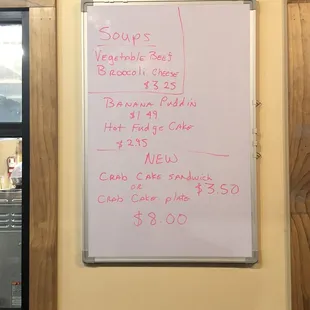 Soups
Vegetable Beef
Broccoli Cheese
$3.25
Banana Puddin
$1.49
Hot Fudge Cake
$2.95
NEW
Crab Cake Sandwich
$3.50
or
Crab Cake plate
$8.00